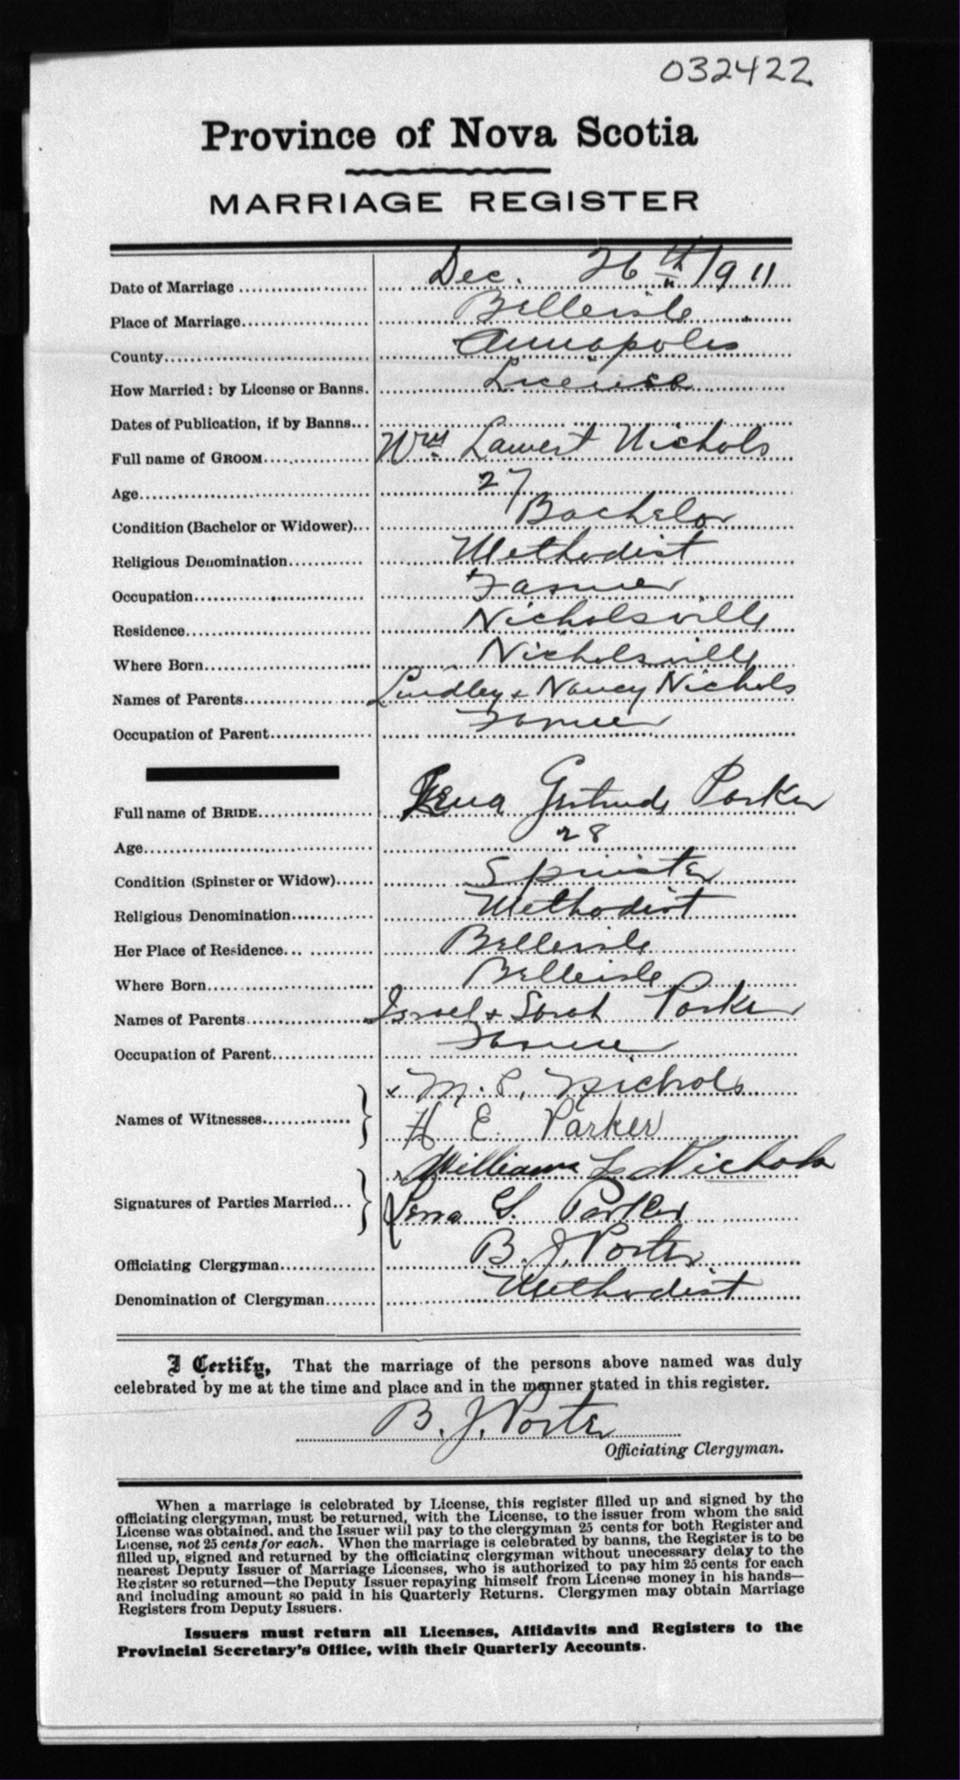 032422
Province of Nova Scotia
MARRIAGE REGISTER
Date of Marriage Dec. 26th 1911
Place of Marriage Belleisle
County Annapolis
How Married: by License or Banns. License
Dates of Publication, if by Banns
Full name of GROOM Wm Lawert Nichols
Age 27
Condition (Bachelor or Widower) Bachelor
Religious Denomination Methodist
Occupation Farmer
Residence Nicholsville
Where Born Nicholsville
Names of Parents Lindley & Nancy Nichols
Occupation of Parent Farmer
Full name of BRIDE Lena Gertrude Parker
Age 28
Condition (Spinster or Widow) Spinster
Religious Denomination Methodist
Her Place of Residence Belleisle
Where Born Belleisle
Names of Parents Israel & Sarah Parker
Occupation of Parent Farmer
Names of Witnesses x M. P. Nichols
H E. Parker
Signatures of Parties Married x William L Nichols
Lena G. Parker
Officiating Clergyman B. J. Porter
Denomination of Clergyman Methodist
I Certify, That the marriage of the persons above named was duly
celebrated by me at the time and place and in the manner stated in this register.
B. J. Porter
Officiating Clergyman.
When a marriage is celebrated by License, this register filled up and signed by the
officiating clergyman, must be returned, with the License, to the issuer from whom the said
License was obtained, and the Issuer will pay to the clergyman 25 cents for both Register and
License, not 25 cents for each. When the marriage is celebrated by banns, the Register is to be
filled up, signed and returned by the officiating clergyman without unnecessary delay to the
nearest Deputy Issuer of Marriage Licenses, who is authorized to pay him 25 cents for each
Register so returned—the Deputy Issuer repaying himself from License money in his hands—
and including amount so paid in his Quarterly Returns. Clergymen may obtain Marriage
Registers from Deputy Issuers.
Issuers must return all Licenses, Affidavits and Registers to the
Provincial Secretary's Office, with their Quarterly Accounts.